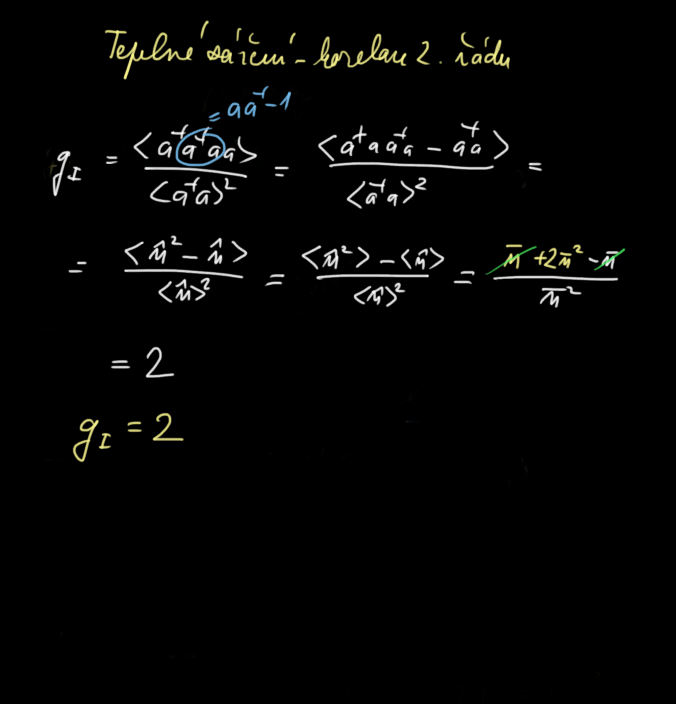 Tepelné záření - korelace 2. řádu
= aa† - 1
g_I = <a†a†aa> / <a†a>² = <a†aa†a - a†a> / <a†a>² =
= <n̂² - n̂> / <n̂>² = <n̂²> - <n̂> / <n̂>² = n̄ + 2n̄² - n̄ / n̄²
= 2
g_I = 2